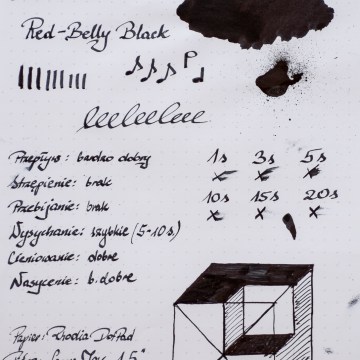 Red-Belly Black
Przepływ: bardzo dobry
Strzępienie: brak
Przebijanie: brak
Wysychanie: szybkie (5-10s)
Cieniowanie: dobre
Nasycenie: b. dobre
1s 3s 5s
10s 15s 20s
Papier: Rhodia DotPad
1.5"